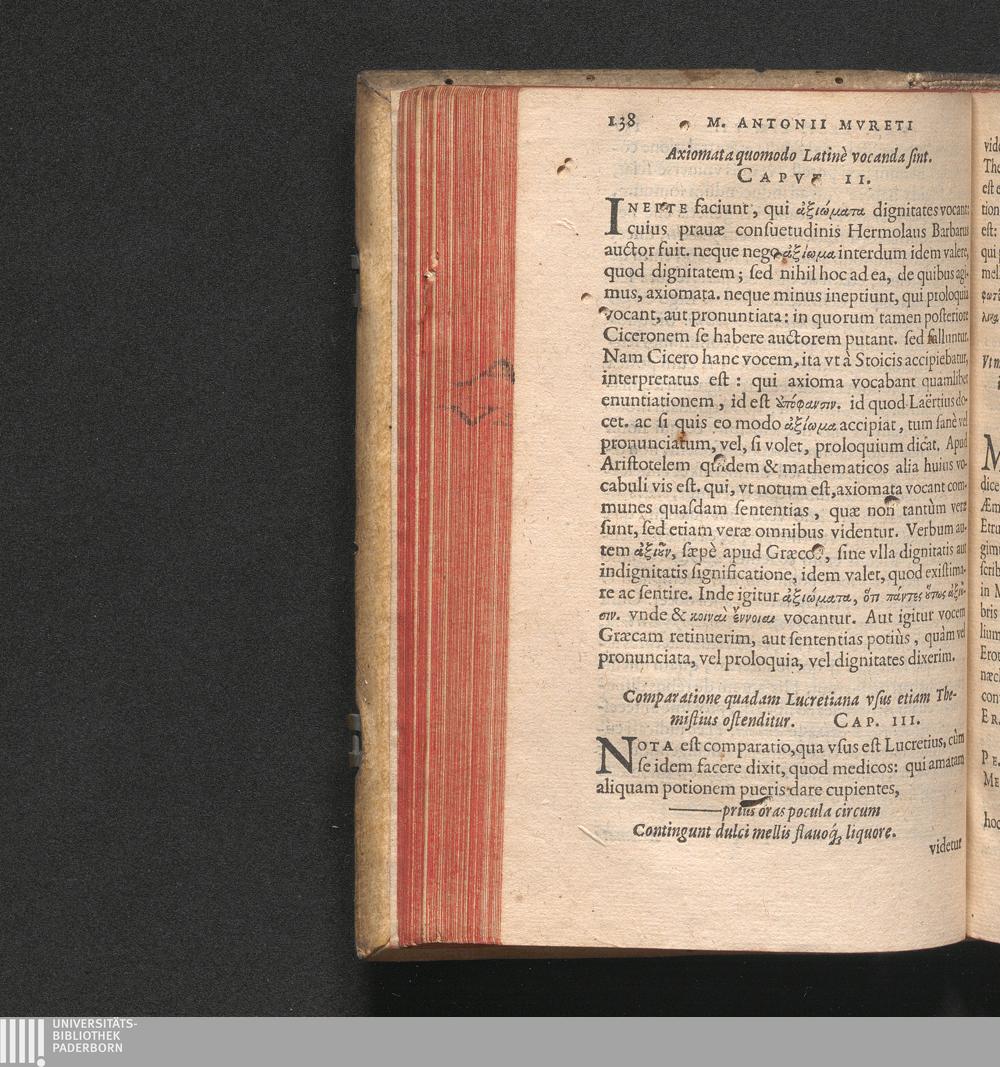 138 M. ANTONII MVRETI
Axiomata quomodo Latinè vocanda ſint.
CAPVT II.
INEPTE faciunt, qui ἀξιώματα dignitates vocant:
cuius prauæ conſuetudinis Hermolaus Barbarus
auctor fuit. neque nego ἀξίωμα interdum idem valere,
quod dignitatem; ſed nihil hoc ad ea, de quibus agi-
mus, axiomata. neque minus ineptiunt, qui proloquia
vocant, aut pronuntiata: in quorum tamen poſteriore
Ciceronem ſe habere auctorem putant. ſed falluntur.
Nam Cicero hanc vocem, ita vt à Stoicis accipiebatur,
interpretatus eſt: qui axioma vocabant quamlibet
enuntiationem, id eſt ἀπόφανσιν. id quod Laërtius do-
cet. ac ſi quis eo modo ἀξίωμα accipiat, tum ſanè vel
pronunciatum, vel, ſi volet, proloquium dicat. Apud
Ariſtotelem quidem & mathematicos alia huius vo-
cabuli vis eſt. qui, vt notum eſt, axiomata vocant com-
munes quaſdam ſententias, quæ non tantùm veræ
ſunt, ſed etiam veræ omnibus videntur. Verbum au-
tem ἀξιοῦν, ſæpè apud Græcos, ſine vlla dignitatis aut
indignitatis ſignificatione, idem valet, quod exiſtima-
re ac ſentire. Inde igitur ἀξιώματα, ὅτι πάντες οὕτως ἀξιοῦ-
σιν. vnde & κοιναὶ ἔννοιαι vocantur. Aut igitur vocem
Græcam retinuerim, aut ſententias potiùs, quàm vel
pronunciata, vel proloquia, vel dignitates dixerim.
Comparatione quadam Lucretiana vſus etiam The-
miſtius oſtenditur. CAP. III.
NOTA eſt comparatio, qua vſus eſt Lucretius, cùm
ſe idem facere dixit, quod medicos: qui amaram
aliquam potionem pueris dare cupientes,
——prius oras pocula circum
Contingunt dulci mellis flauoq́; liquore.
videtur
vide
The
eſt e
tion
eſt:
qui
mel
dice
Æm
Etru
gimu
ſcrib
in M
bris
lium
Erot
næci
con
ER
PE
ME
hoc
UNIVERSITÄTS-
BIBLIOTHEK
PADERBORN